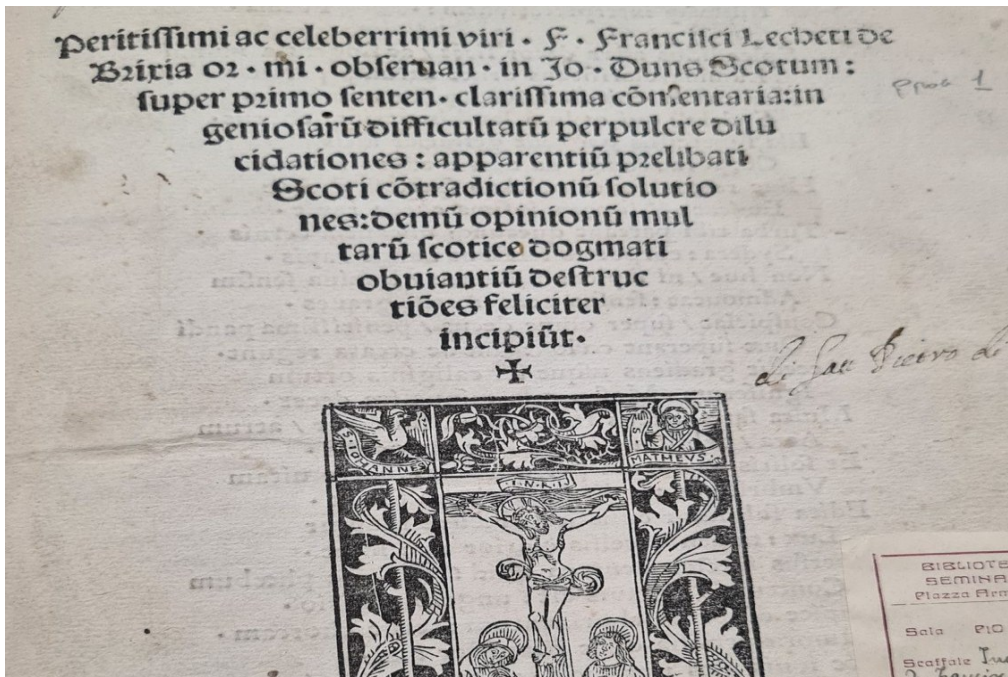 Peritissimi ac celeberrimi viri · F · Francisci Lecheti de
Brixia or · mi · obseruan · in Jo · Duns Scotum :
super primo senten · clarissima cōmentaria: in
geniosarū difficultatū perpulcre dilu
cidationes : apparentiū prelibati
Scoti cōtradictionū solutio
nes: demū opinionū mul
tarū scotice dogmati
obuiantiū destruc
tiōes feliciter
incipiūt ·
Proa 1
di San Pietro di
S · IOHANNES
S · MATHEVS ·
I · N · R · I
BIBLIOTE
SEMINA
Piazza Arm
Sala PIO
Scaffale